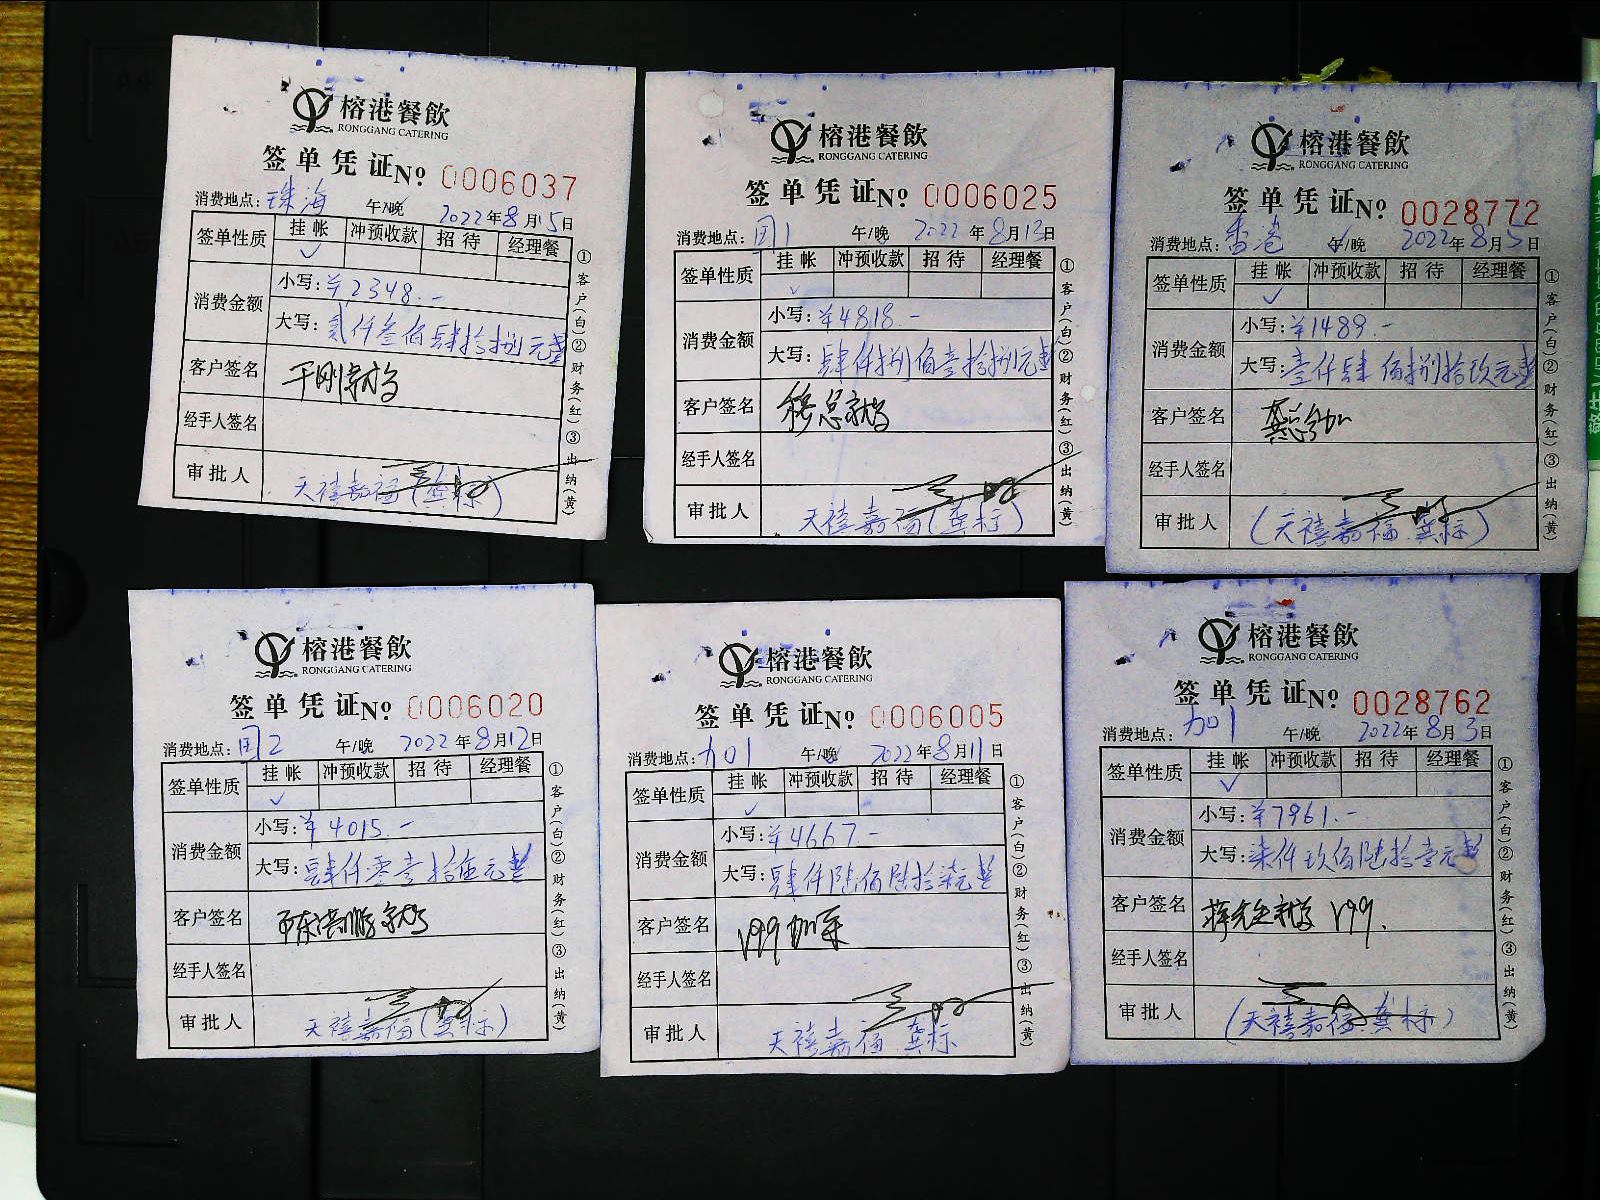 榕港餐飲
RONGGANG CATERING
签单凭证No 0006037
消费地点:珠海 午/晚 2022年8月15日
签单性质 挂帐 冲预收款 招待 经理餐
✓
消费金额 小写:¥2348.-
大写:贰仟叁佰肆拾捌元整
客户签名
经手人签名
审批人 天禧嘉福(龚标)
①客户(白)②财务(红)③出纳(黄)
榕港餐飲
RONGGANG CATERING
签单凭证No 0006025
消费地点:团1 午/晚 2022年8月13日
签单性质 挂帐 冲预收款 招待 经理餐
✓
消费金额 小写:¥4818.-
大写:肆仟捌佰壹拾捌元整
客户签名
经手人签名
审批人 天禧嘉福(龚标)
①客户(白)②财务(红)③出纳(黄)
榕港餐飲
RONGGANG CATERING
签单凭证No 0028772
消费地点:香港 午/晚 2022年8月5日
签单性质 挂帐 冲预收款 招待 经理餐
✓
消费金额 小写:¥1489.-
大写:壹仟肆佰捌拾玖元整
客户签名 龚总
经手人签名
审批人 (天禧嘉福.龚标)
①客户(白)②财务(红)③出纳(黄)
榕港餐飲
RONGGANG CATERING
签单凭证No 0006020
消费地点:团2 午/晚 2022年8月12日
签单性质 挂帐 冲预收款 招待 经理餐
✓
消费金额 小写:¥4015.-
大写:肆仟零壹拾伍元整
客户签名
经手人签名
审批人 天禧嘉福(龚标)
①客户(白)②财务(红)③出纳(黄)
榕港餐飲
RONGGANG CATERING
签单凭证No 0006005
消费地点:加1 午/晚 2022年8月11日
签单性质 挂帐 冲预收款 招待 经理餐
✓
消费金额 小写:¥4667.-
大写:肆仟陆佰陆拾柒元整
客户签名 V99
经手人签名
审批人 天禧嘉福.龚标
①客户(白)②财务(红)③出纳(黄)
榕港餐飲
RONGGANG CATERING
签单凭证No 0028762
消费地点:加1 午/晚 2022年8月3日
签单性质 挂帐 冲预收款 招待 经理餐
✓
消费金额 小写:¥7961.-
大写:柒仟玖佰陆拾壹元整
客户签名 V99.
经手人签名
审批人 (天禧嘉福.龚标)
①客户(白)②财务(红)③出纳(黄)